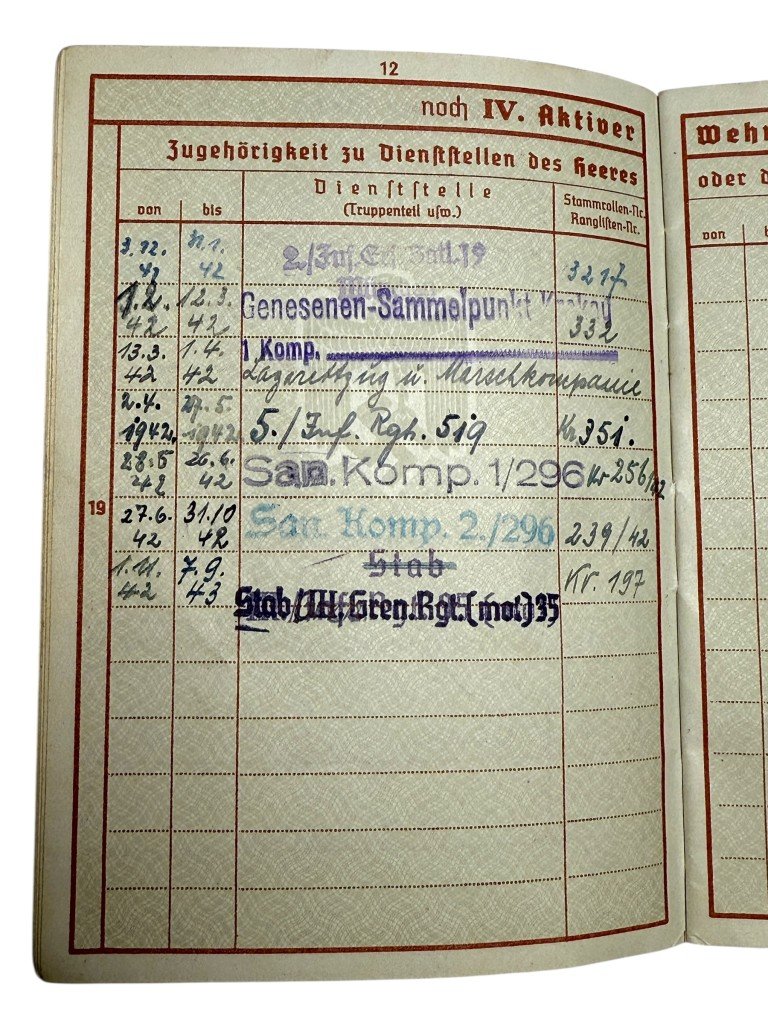 12
noch IV. Aktiver
Zugehörigkeit zu Dienststellen des Heeres
von bis
Dienststelle
(Truppenteil usw.)
Stammrollen-Nr.
Ranglisten-Nr.
3.12. 31.1. 2./Inf. Ers. Batl. 19
41 42 3217
1.2. 12.3. Genesenen-Sammelpunkt Krakau
42 42 332
1 Komp.
13.3. 1.4. Lazarettzug u. Marschkompanie
42 42
2.4. 27.5.
1942. 1942. 5./Inf. Rgt. 519 Kr. 351.
28.5 26.6.
42 42 San. Komp. 1/296 Kr 256/42
19
27.6. 31.10 San. Komp. 2./296
42 42 239/42
Stab
1.11. 7.9. Kr. 197
42 43 Stab/III./Gren. Rgt. (mot) 35
Wehr
oder d
von